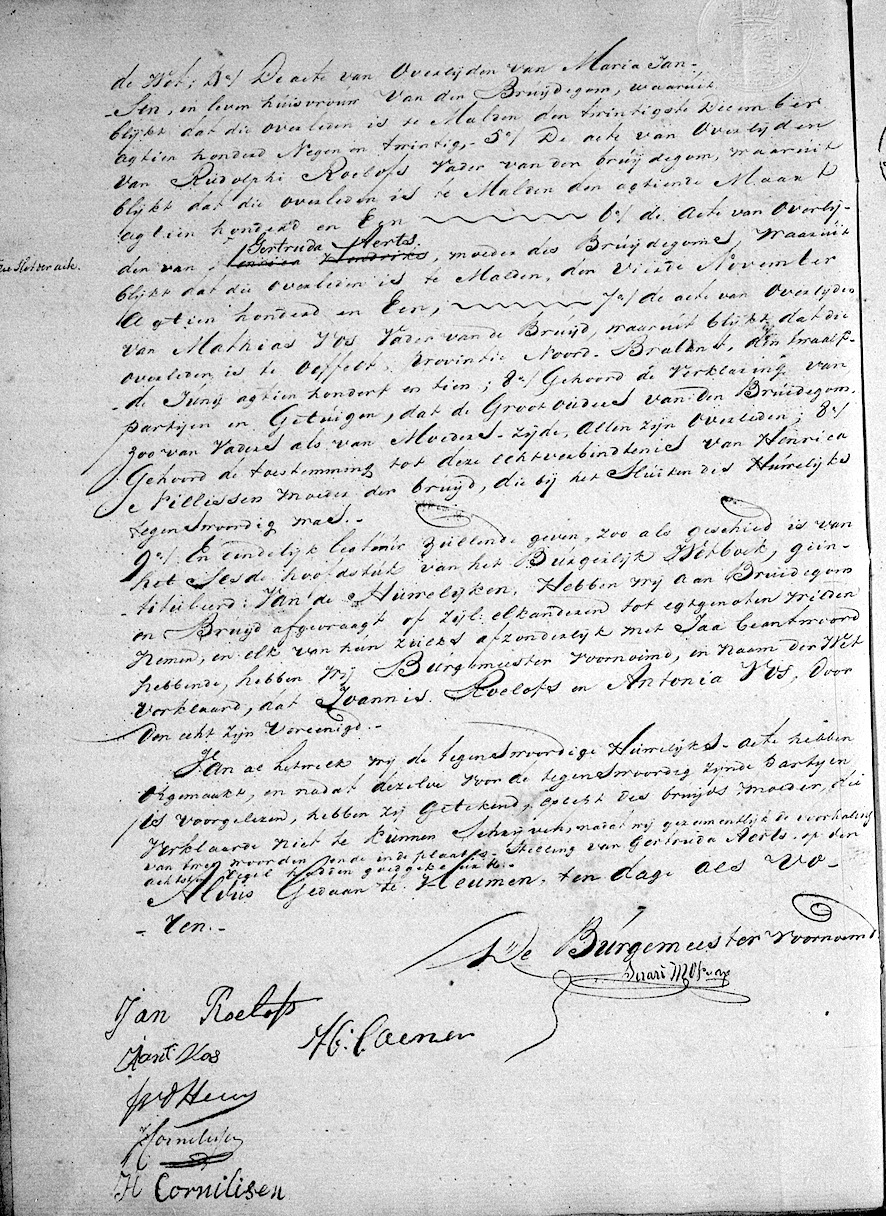 de Wet; 4e/ De acte van Overlijden van Maria Jan-
-sen, in leven huisvrouw van den Bruijdegom, waaruit
blijkt dat die overleden is te Malden den twintigste Decemb er
agtien honderd Negen en twintig,- 5e/ De acte van Overlijden
van Rudolphi Roelofs Vader van den bruijdegom, waaruit
blijkt dat die overleden is te Malden den agtiende Maart
agtien honderd en Een 6e/ de acte van Overlij-
Gertruda Aerts.
den van Hendriks, moeder des Bruijdegoms, waaruit
blijkt dat die overleden is te Malden, den Vierde November
Agtien honderd en Een; 7e/ de acte van Overlijden
van Mathias Vos Vader van de Bruijd, waaruit blijkt dat die
overleden is te Oeffelt, Provintie Noord-Braband, den twaalf-
-de Junij agtien hondert en tien; 8e/ Gehoord de Verklaring van
partijen en Getuigen, dat de Grootouders van den Bruidegom
zoo van Vaders als van Moeders-zijde, allen zijn overleden; 8e/
Gehoord de toestemming tot deze echtverbindtenis van Henrica
Nillissen moeder der bruijd, die bij het sluiten des Huwelijks
tegenswoordig was.-
9e/ En eindelijk zullende geven, zoo als geschied is van
het Sesde hoofdstuk van het Burgerlijk Wetboek, gein-
-tituleerd: Van de Huwelijken, Hebben wij aan Bruidegom
en Bruijd afgevraagt of zij elkanderen tot egtgenoten wilden
Nemen, en elk van hun zulks afzonderlijk met Jaa beantwoord
hebbende, hebben wij Burgemeester voornoemd, in Naam der Wet
verklaard, dat Joannis Roelofs en Antonia Vos, door
den echt zijn vereenigd.-
Van al hetwelk wij de tegenswoordige Huwelijks-acte hebben
opgemaakt, en nadat dezelve voor de tegenswoordig zijnde Partijen
is voorgelezen, hebben zij Getekend, des bruijds moeder, die
verklaarde niet te kunnen Schrijven, nadat wij gezamentlijk de doorhaling
van twee woorden en de inde plaats-Stelling van Gertruda Aerts op den
achtsten regel hadden goedgekeurd.-
Aldus Gedaan te Heumen, ten dage als vo-
-ren.-
De Burgemeester voornoemd
Jan Roelofs
Ant Vos
H Cornilisen